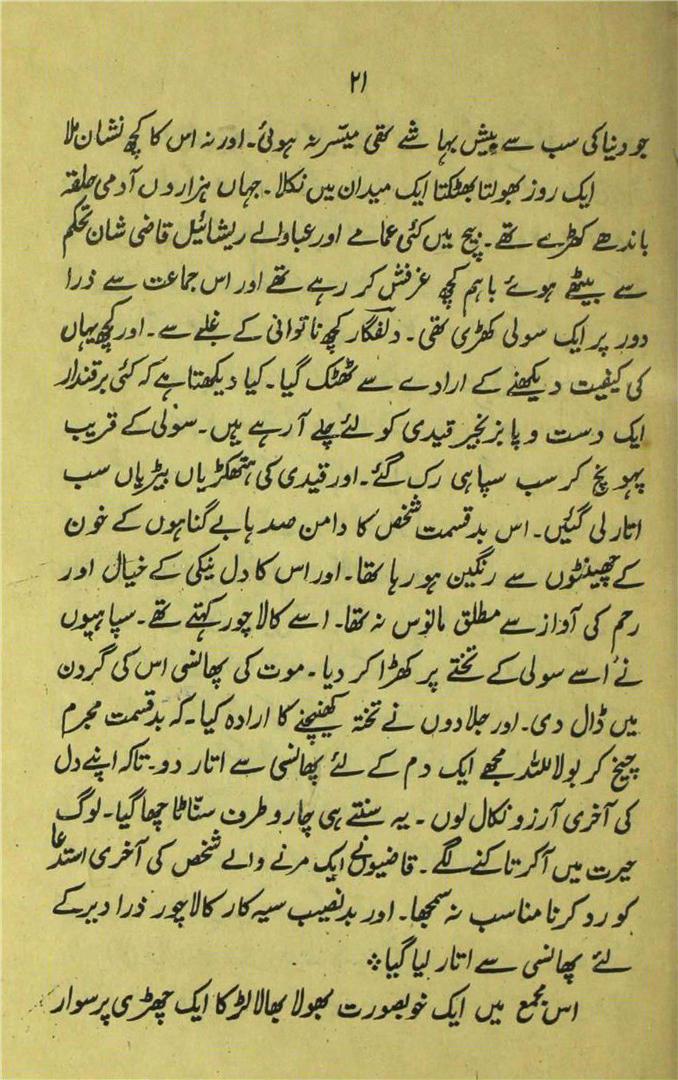 ۲۱
جو دنیا کی سب سے بیش بہا شے تھی میسّر نہ ہوئی۔ اور نہ اس کا کچھ نشان ملا
ایک روز بھولتا بھٹکتا ایک میدان میں نکلا۔ جہاں ہزاروں آدمی حلقہ
باندھے کھڑے تھے۔ بیچ میں کئی عمامے اور عباوالے ریشائیل قاضی شان تحکم
سے بیٹھے ہوئے باہم کچھ غرفش کر رہے تھے اور اس جماعت سے ذرا
دور پر ایک سولی کھڑی تھی۔ دلفگار کچھ ناتوانی کے غلبے سے۔ اور کچھ یہاں
کی کیفیت دیکھنے کے ارادے سے ٹھٹک گیا۔ کیا دیکھتا ہے کہ کئی برقنداز
ایک دست و پا بزنجیر قیدی کو لئے چلے آرہے ہیں۔ سولی کے قریب
پہونچ کر سب سپاہی رک گئے۔ اور قیدی کی ہتھکڑیاں بیڑیاں سب
اتار لی گئیں۔ اس بدقسمت شخص کا دامن صدہا بے گناہوں کے خون
کے چھینٹوں سے رنگین ہو رہا تھا۔ اور اس کا دل نیکی کے خیال اور
رحم کی آواز سے مطلق مانوس نہ تھا۔ اسے کالا چور کہتے تھے۔ سپاہیوں
نے اسے سولی کے تختے پر کھڑا کر دیا۔ موت کی پھانسی اس کی گردن
میں ڈال دی۔ اور جلادوں نے تختہ کھینچنے کا ارادہ کیا۔ کہ بدقسمت مجرم
چیخ کر بولا للللہ مجھے ایک دم کے لئے پھانسی سے اتار دو۔ تاکہ اپنے دل
کی آخری آرزو نکال لوں۔ یہ سنتے ہی چارو طرف سنّاٹا چھا گیا۔ لوگ
حیرت میں آکر تاکنے لگے۔ قاضیونے ایک مرنے والے شخص کی آخری استدعا
کو رد کرنا مناسب نہ سمجھا۔ اور بدنصیب سیہ کار کالا چور ذرا دیر کے
لئے پھانسی سے اتار لیا گیا٭
اس مجمع میں ایک خوبصورت بھولا بھالا لڑکا ایک چھڑی پر سوار